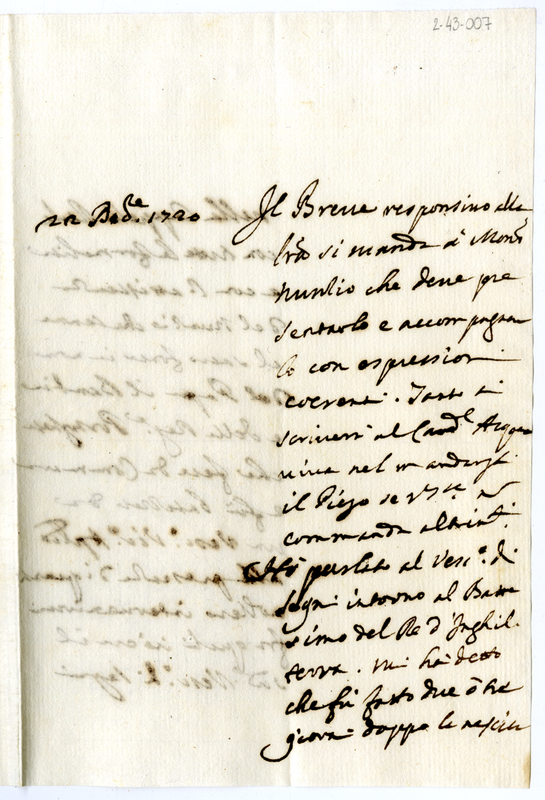 2-43-007
22 Xbre. 1720
Il Breve responsivo alla
lrã si manda a Monsr
Nunzio che deve pre
sentarlo e accompagnar
lo con espressioni
coerenti. Tanto si
scriverà al Cardl Acqua
viva nel mandargli
il Piego se V. Stà no
commanda altrimti.
Hò parlato al Vesco. di
Segni intorno al Batte
simo del Rè d'Inghil.
terra. Mi hà detto
che fù fatto due ò tre
giorni doppo la nascita